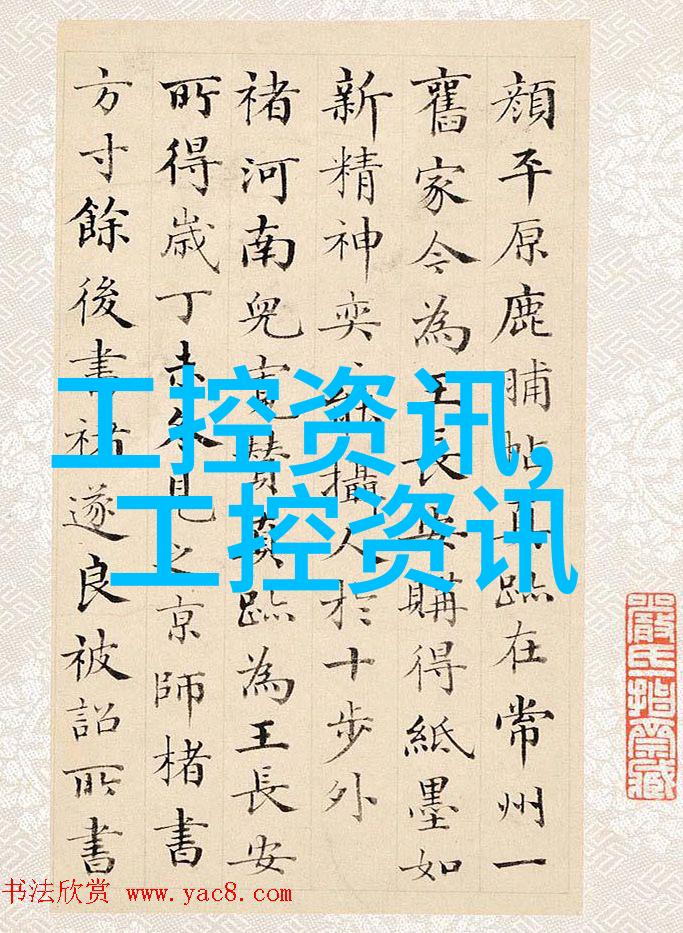 顏平原鹿脯帖真跡在常州一
舊家今為王長安購得紙墨如
新精神奕攝人於十步外
褚河南兒寬贊真跡為王長安
所得歲丁未見之京師楮書
方寸餘後書褚遂良被詔所書
工控资讯,
工控资讯
书法欣赏 www.yac8.com